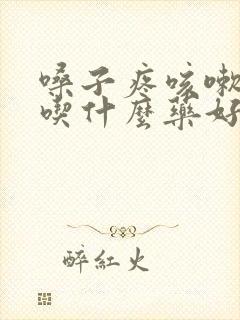 嗓子疼咳嗽
喫什麼藥好
醉紅火